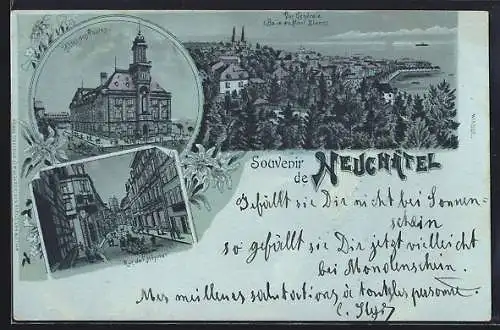 Hôtel des Postes
Vue Générale
Souvenir
de NEUCHÂTEL
Rue de l'Hôpital
Gefällt sie Dir nicht bei Sonnen-
schein
so gefällt sie Dir jetzt vielleicht
bei Mondenschein.
Mes meilleures salutations à toutes personne